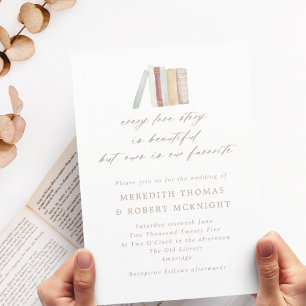 every love story
is beautiful
but ours is our favorite
Please join us for the wedding of
MEREDITH THOMAS
& ROBERT MCKNIGHT
Saturday sixteenth June
Two Thousand Twenty Two
At Two O'Clock in the afternoon
The Old Library
Ambridge
Reception follows afterwards